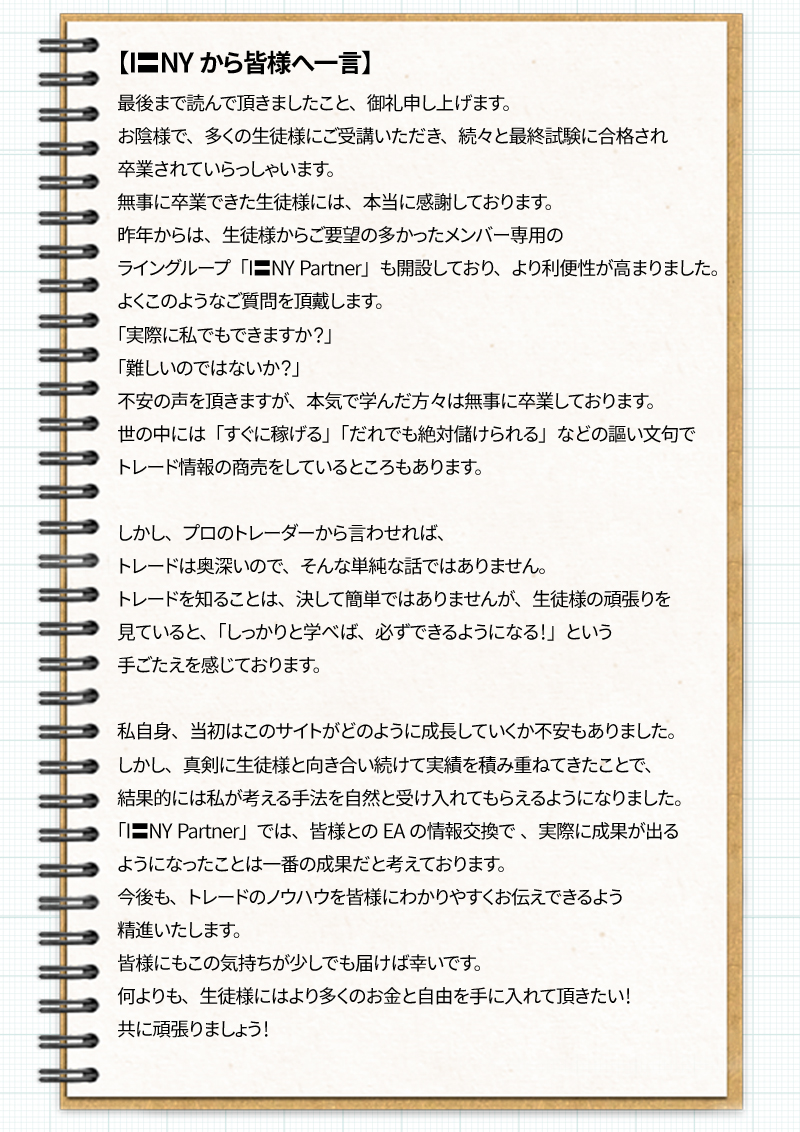 【I〓NY から皆様へ一言】
最後まで読んで頂きましたこと、御礼申し上げます。
お陰様で、多くの生徒様にご受講いただき、続々と最終試験に合格され
卒業されていらっしゃいます。
無事に卒業できた生徒様には、本当に感謝しております。
昨年からは、生徒様からご要望の多かったメンバー専用の
ライングループ「I〓NY Partner」も開設しており、より利便性が高まりました。
よくこのようなご質問を頂戴します。
「実際に私でもできますか?」
「難しいのではないか?」
不安の声を頂きますが、本気で学んだ方々は無事に卒業しております。
世の中には「すぐに稼げる」「だれでも絶対儲けられる」などの謳い文句で
トレード情報の商売をしているところもあります。
しかし、プロのトレーダーから言わせれば、
トレードは奥深いので、そんな単純な話ではありません。
トレードを知ることは、決して簡単ではありませんが、生徒様の頑張りを
見ていると、「しっかりと学べば、必ずできるようになる!」という
手ごたえを感じております。
私自身、当初はこのサイトがどのように成長していくか不安もありました。
しかし、真剣に生徒様と向き合い続けて実績を積み重ねてきたことで、
結果的には私が考える手法を自然と受け入れてもらえるようになりました。
「I〓NY Partner」では、皆様との EA の情報交換で 、実際に成果が出る
ようになったことは一番の成果だと考えております。
今後も、トレードのノウハウを皆様にわかりやすくお伝えできるよう
精進いたします。
皆様にもこの気持ちが少しでも届けば幸いです。
何よりも、生徒様にはより多くのお金と自由を手に入れて頂きたい!
共に頑張りましょう!